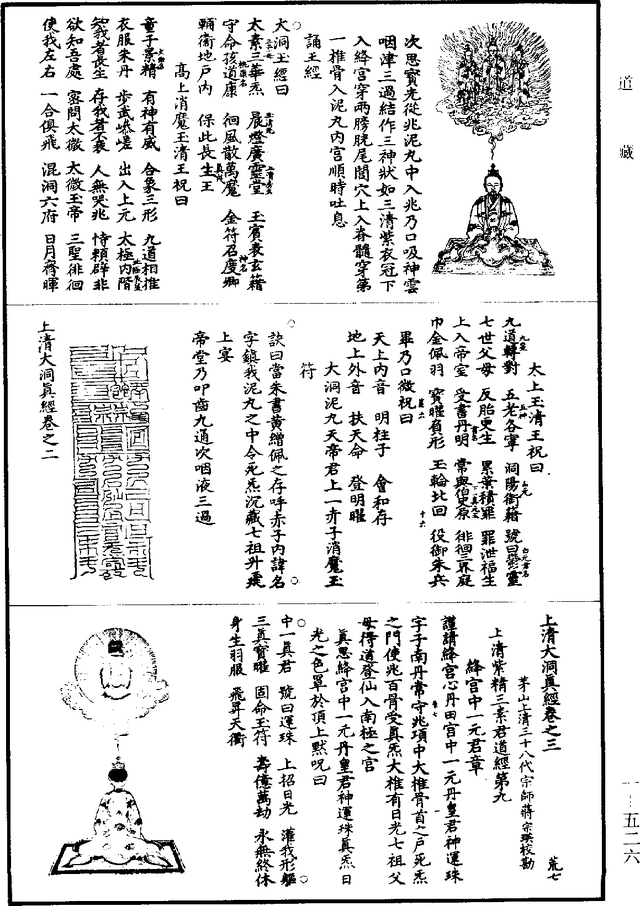 道藏
次思寶先從兆泥丸中入兆乃口吸神雲
咽津三過結作三神狀如三清紫衣冠下
入絳宮穿兩膀胱尾閭穴上入脊髓穿第
一椎骨入泥丸內宮順時吐息
誦玉經
大洞玉經曰
太素三華炁 展燈廣靈堂 玉賓表玄籍
守命孩道康 徊風散萬魔 金符召慶卿
輔衛地戶內 保此長生王
高上消魔玉清王祝曰
童子景精 有神有威 合象三形 九道相推
衣服朱丹 步武恭嗟 出入上元 太極內階
知我者長生 存我者不衰 人無哭兆 恃賴辟非
欲知吾處 密問太微 太微玉帝 三聖徘徊
使我左右 一合俱飛 混洞六府 日月齊暉
太上玉清王祝曰
九道轉對 五老各寧 洞陽衛籍 號曰鬱靈
七世父母 反胎更生 累葉積罪 罪泄福生
上入帝室 受書丹明 常與伯史原 徘徊三界庭
巾金佩羽 寶曜負形 玉輪北回 役御朱兵
畢乃口微祝曰
天上內音 明柱子 會和存
地上外音 扶天命 登明曜
大洞泥丸天帝君上一赤子消魔玉
符
訣曰當朱書黃繒佩之存呼赤子內諱名
字鎮我泥丸之中令死炁沉藏七祖升度
上宴
帝堂乃叩齒九通次咽液三過
上清大洞真經卷之二
上清大洞真經卷之三 荒七
茅山上清三十八代宗師蔣宗瑛校勘
上清紫精三素君道經第九
絳宮中一元君章
謹請絳宮心丹田宮中一元丹皇君神運珠
字子南丹常守兆項中大椎骨首之戶死炁
之門使兆百骨受真炁大椎有日光七祖父
母得道登仙入南極之宮
真思絳宮中一元丹皇君神運珠真炁日
光之色罩於頂上默咒曰
中一真君 號曰運珠 上招日光 灌我形軀
三真寶曜 固命玉符 壽億萬劫 永無終休
身生羽服 飛昇天衢
一—五二六